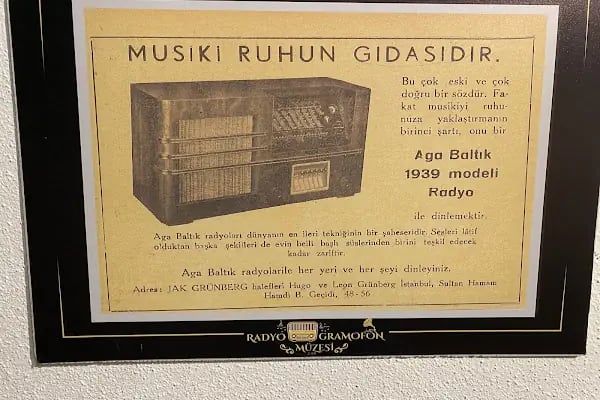 MUSİKİ RUHUN GIDASIDIR.
Bu çok eski ve çok
doğru bir sözdür. Fa-
kat musikiyi ruhu-
nuza yaklaştırmanın
birinci şartı, onu bir
Aga Baltık
1939 modeli
Radyo
ile dinlemektir.
Aga Baltık radyoları dünyanın en ileri tekniğinin bir şaheseridir. Sesleri lâtif
olduktan başka şekilleri de evin belli başlı süslerinden birini teşkil edecek
kadar zariftir.
Aga Baltık radyolarile her yeri ve her şeyi dinleyiniz.
Adres: JAK GRÜNBERG halefleri Hugo ve Leon Grünberg İstanbul, Sultan Hamam
Hamdi B. Geçidi, 48-56
RADYO GRAMOFON
MÜZESİ